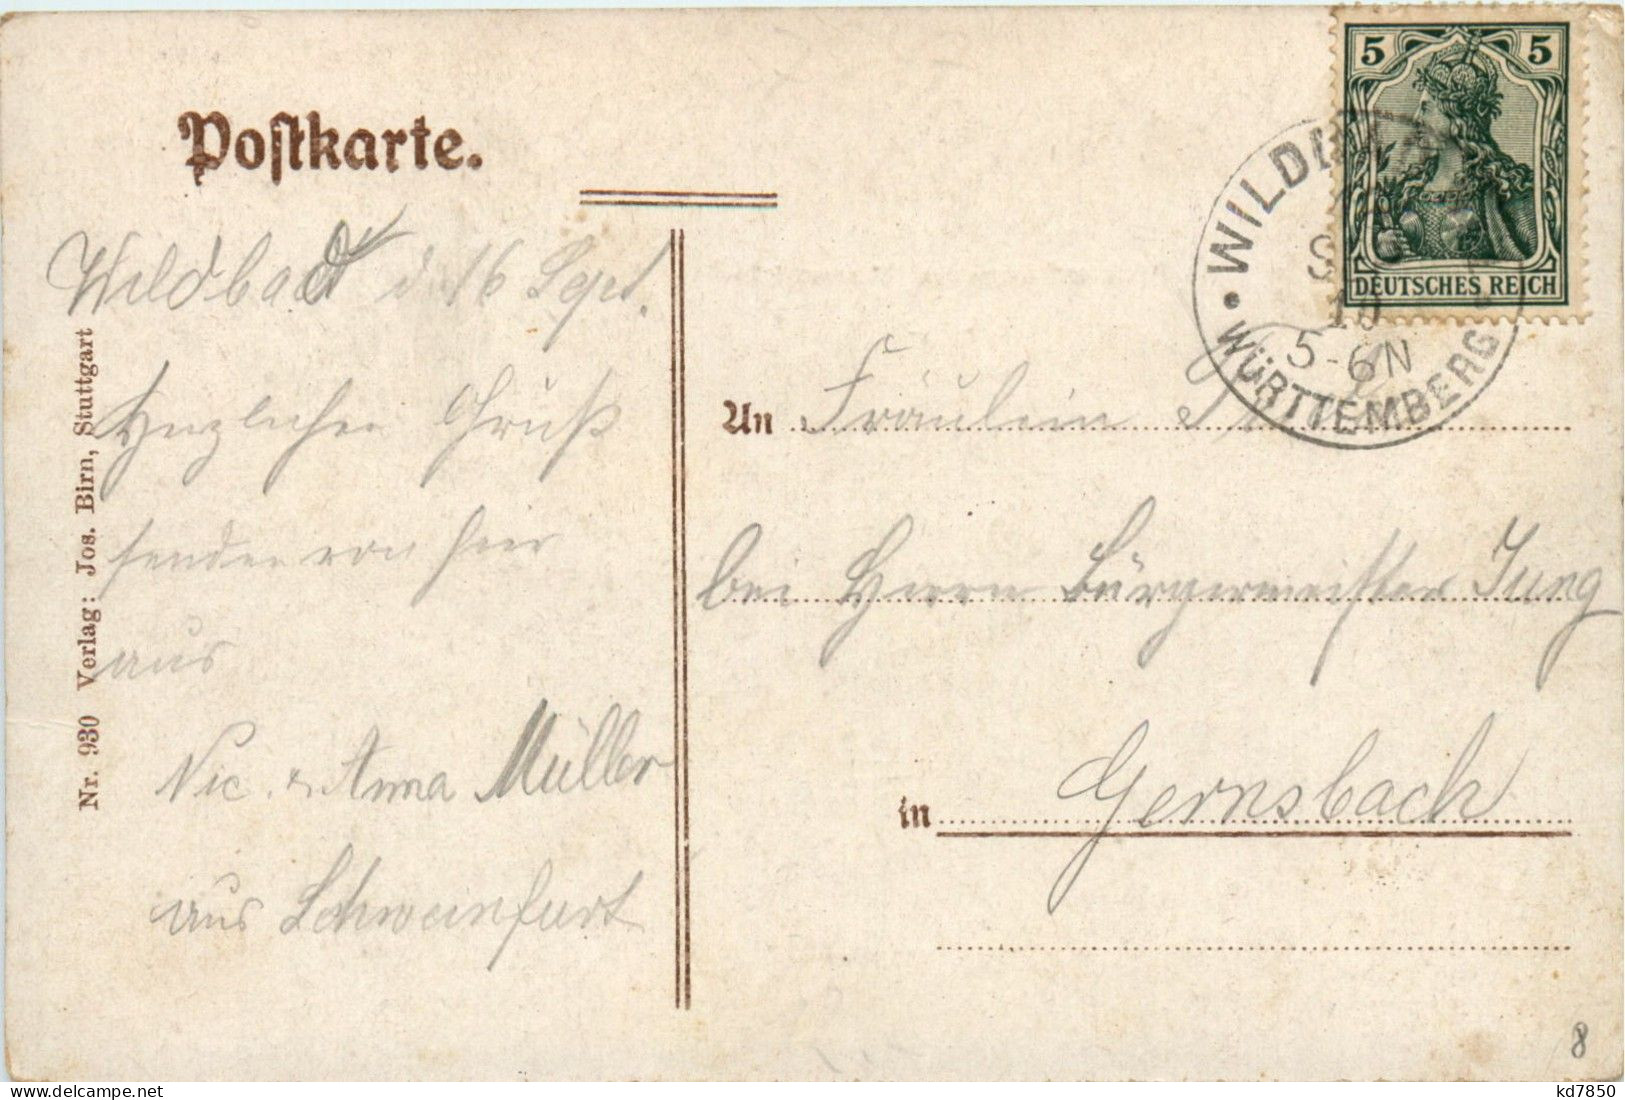 Postkarte.
Wildbad d 16 Sept.
Herzlichen Gruß
senden von hier
aus
Nic. & Anna Müller
aus Schweinfurt
Nr. 930 Verlag: Jos. Birn, Stuttgart
5 5
DEUTSCHES REICH
WILDB
S
10
5-6N
WÜRTTEMBERG
An Fräulein
bei Herrn Bürgermeister Jung
in Gernsbach
8
kd7850